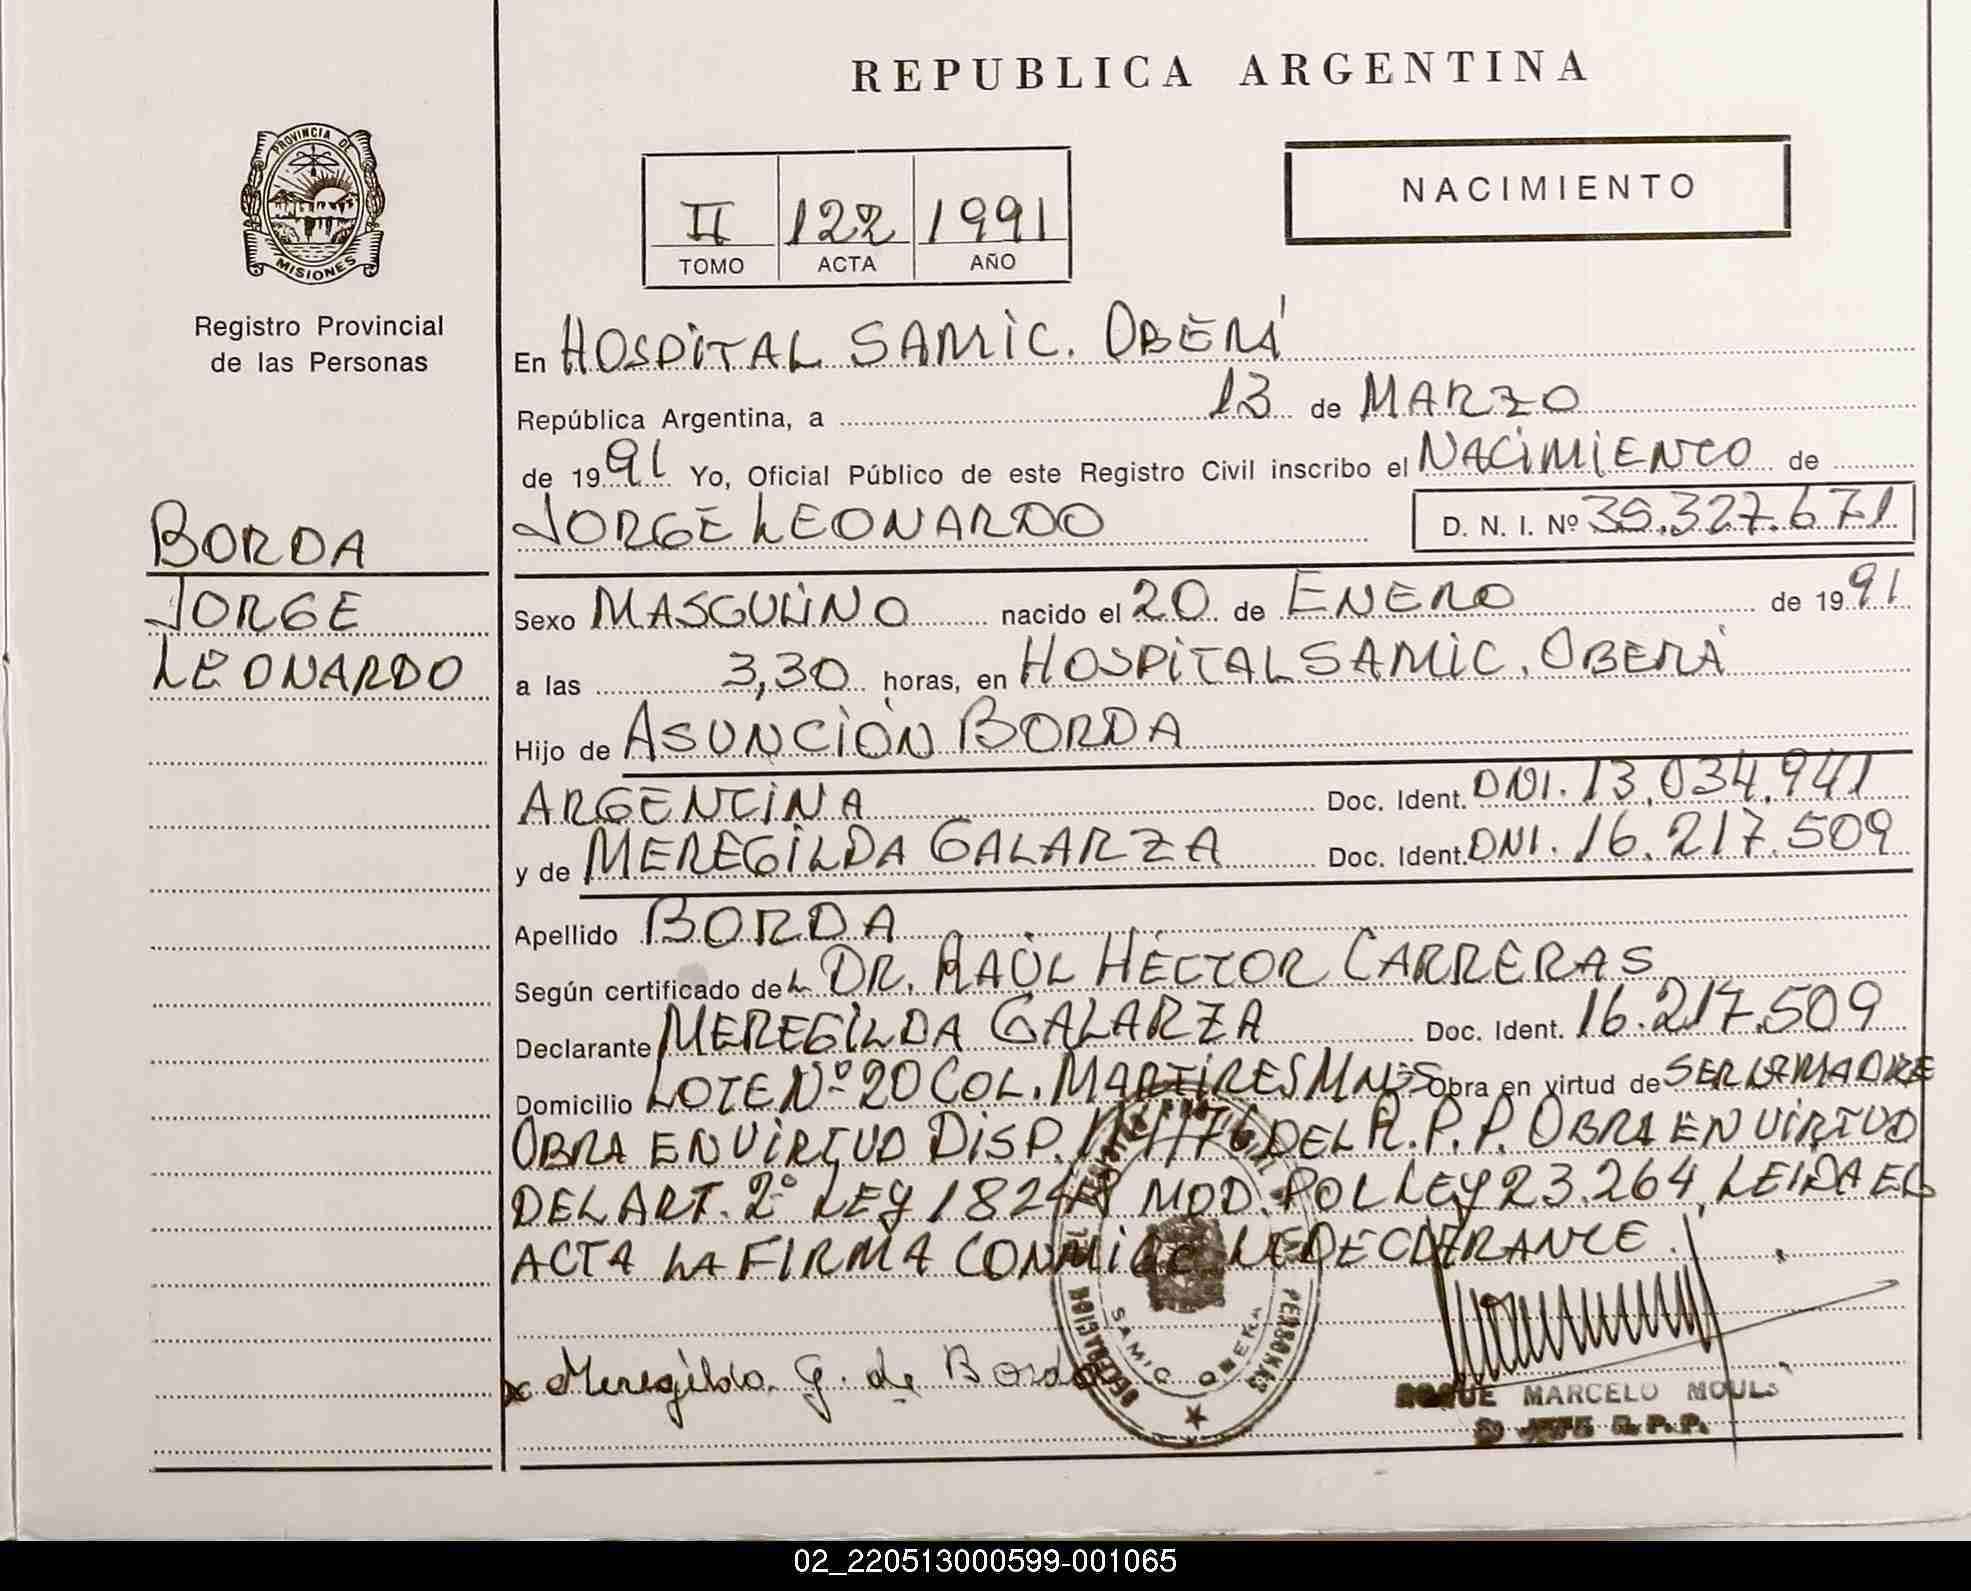 REPUBLICA ARGENTINA
PROVINCIA DE
MISIONES
Registro Provincial
de las Personas
II 122 1991
TOMO ACTA AÑO
NACIMIENTO
BORDA
JORGE
LEONARDO
En HOSPITAL SAMIC. OBERÁ
República Argentina, a 13 de MARZO
de 1991 Yo, Oficial Público de este Registro Civil inscribo el NACIMIENTO de
JORGE LEONARDO D. N. I. Nº 35.327.671
Sexo MASCULINO nacido el 20 de ENERO de 1991
a las 3,30 horas, en HOSPITAL SAMIC. OBERÁ
Hijo de ASUNCIÓN BORDA
ARGENTINA Doc. Ident. DNI. 13.034.941
y de MEREGILDA GALARZA Doc. Ident. DNI. 16.217.509
Apellido BORDA
Según certificado del DR. RAÚL HÉCTOR CARRERAS
Declarante MEREGILDA GALARZA Doc. Ident. 16.217.509
Domicilio LOTE Nº 20 COL. MARTIRES MNES Obra en virtud de SER LA MADRE
OBRA EN VIRTUD DISP. DEL R.P.P. OBRA EN VIRTUD
DEL ART. 2º LEY MOD. POR LEY 23.264. LEIDA EL
ACTA LA FIRMA CONMIGO LA DECLARANTE.
x Meregilda G. de Borda
PERSONAS
SAMIC OBERA
ROQUE MARCELO
JEFE R.P.P.
02_220513000599-001065